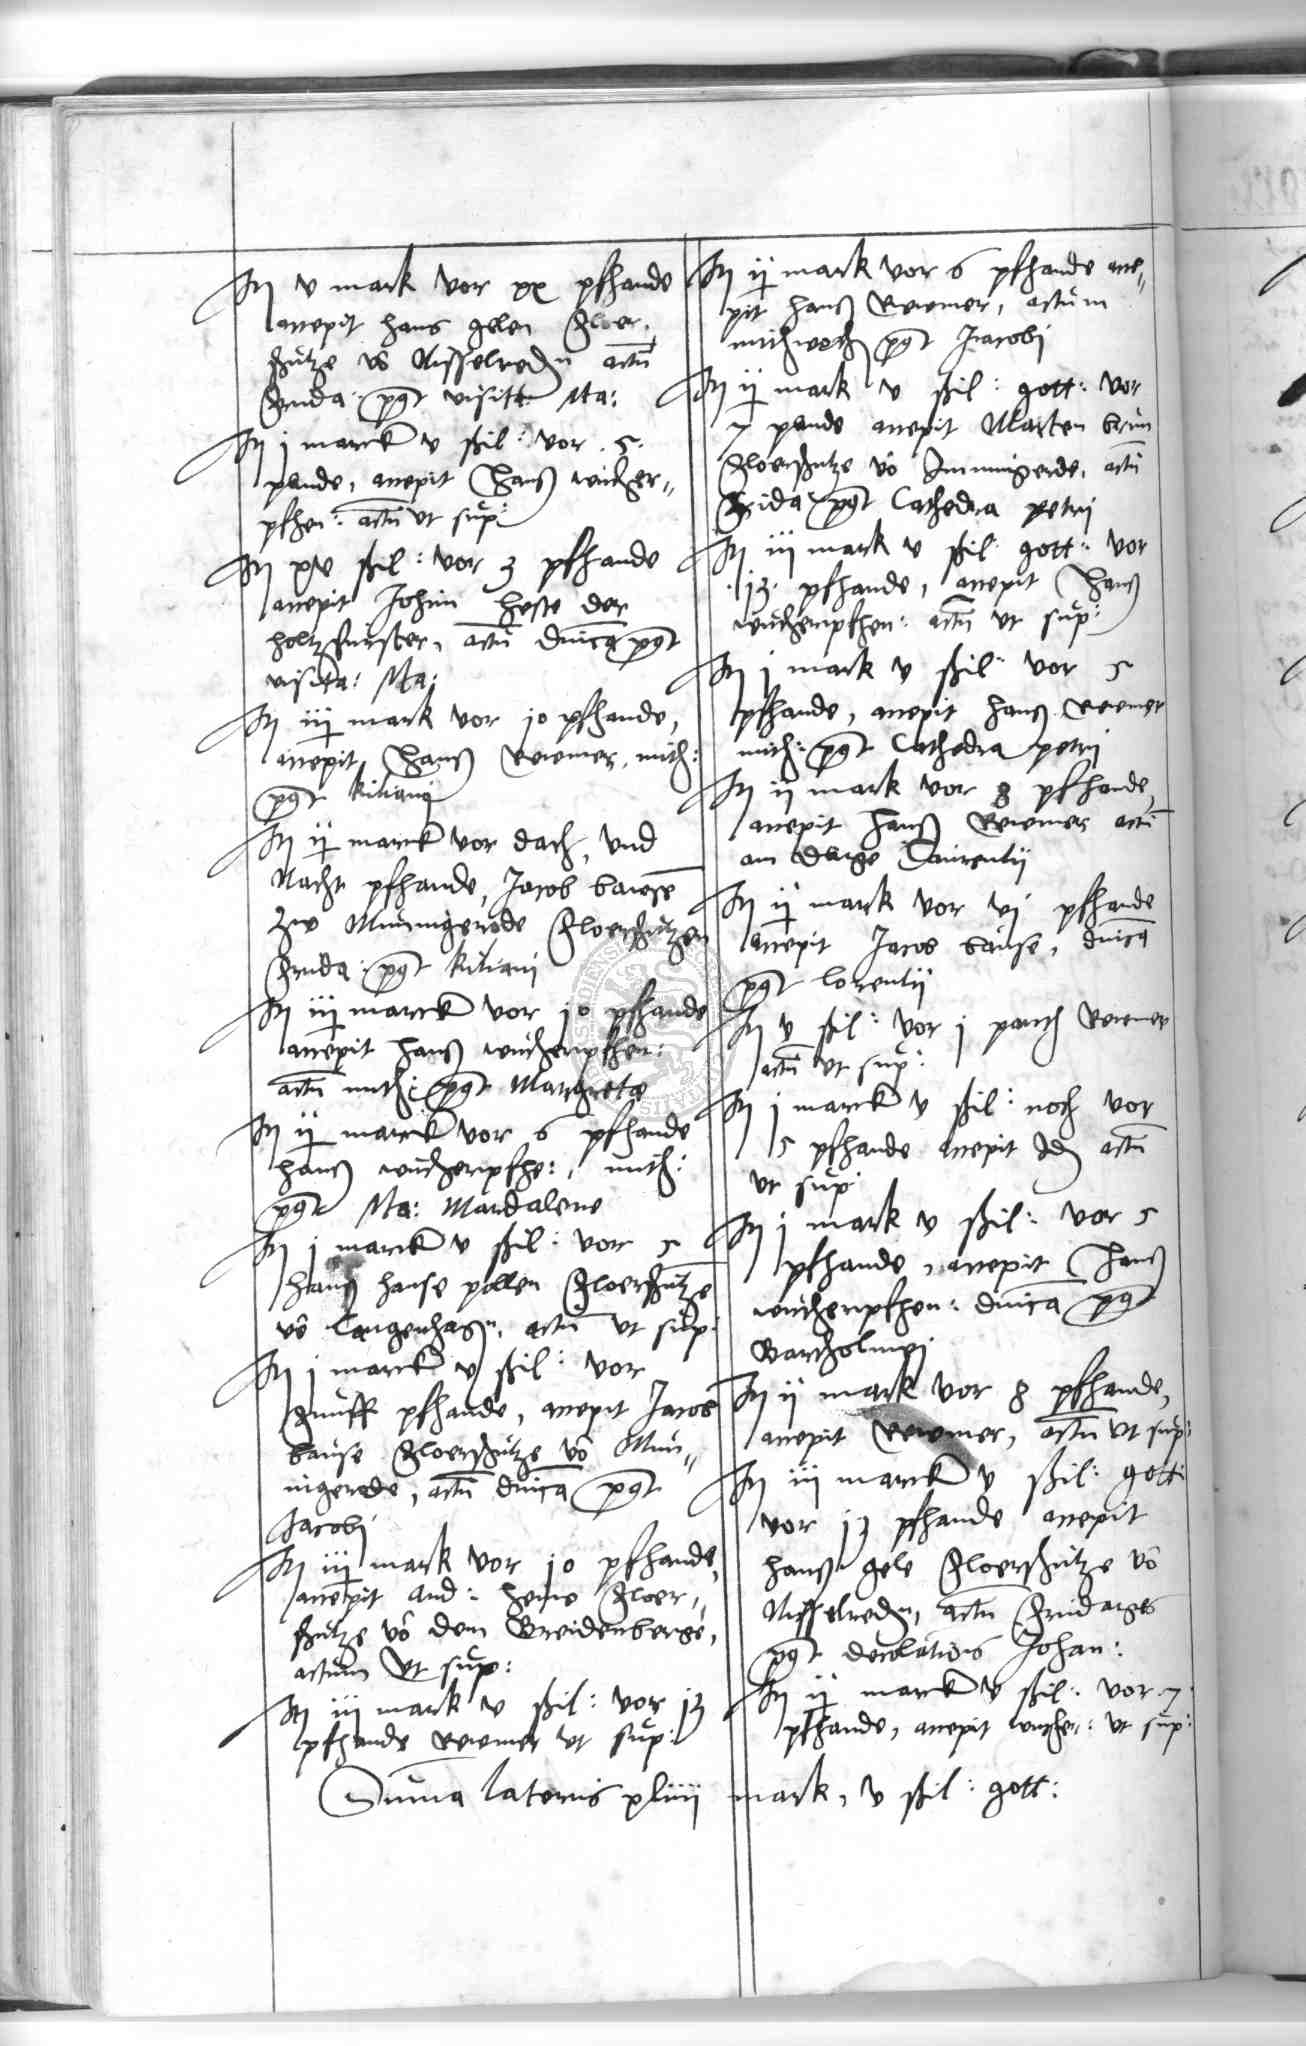 It v mark vor xx pfhande
accepit hans gelen Floer,
schutze vo Nesselredn actu
Frida: post visitt: Ma:
It j marck v schil: vor .5.
phande, accepit Hans wucher„
pfhen: actu ut sup:
It xv schil: vor 3 pfhande
accepit Johan heste der
holtzfurster, actu dnica post
visita: Ma:
It iij mark vor 10 pfhande,
accepit Hans Reremer, mith:
post kiliani
It ij marck vor dach, und
Nacht pfhande, Jacob bawse
zw Minnigerode Floerschutzen
Frida: post kiliani
It iij marck vor 10 pfhande
accepit hans wucherpfhen:
actu mith: post Margrete
It ij marck vor 6 pfhande
hans wucherpfhe:, mith:
post Ma: Mardalene
It j marck v schil: vor 5
hans hanse pollen Floerschutze
vo Langenhagn, actu ut sup:
It j marck v schil: vor
funff pfhande, accepit Jacob
bause Floerschutze vo Min„
nigerode, actu dnica post
Jacobi
It iij mark vor 10 pfhande,
accepit And: heine Floer„
schutze vo dem Breidenberge,
actum ut sup:
It iij mark v schil: vor 13
pfhande Reremer ut sup:
It ij mark vor 6 pfhande acce„
pit hans Reremer, actum
mithwoch post Jacobi
It ij mark v schil: gott: vor
7 phande accepit Marten brun
Floerschutze vo Immingerde, actu
Frida post Cathedra petri
It iij mark v schil: gott: vor
.13. pfhande, accepit Hans
wucherpfhen: actu ut sup:
It j mark v schil: vor 5
pfhande, accepit hans Reremer
mith: post Cathedra petri
It ij mark vor 8 pfhande,
accepit Hans Reremer actu
am dage Laurentii
It ij mark vor vj pfhande
accepit Jacob bause, dnica
post lorentii
It v schil: vor j panth Reremer
actu ut sup:
It j marck v schil: noch vor
5 pfhande accepit Id actu
ut sup:
It j mark v schil: vor 5
pfhande, accepit Hans
wucherpfhen: dnica post
Bartholmei
It ij mark vor 8 pfhande,
accepit Reremer, actu ut sup:
It iij marck v schil: gott:
vor 13 pfhande accepit
hans gele Floerschutze vo
Nesselredn, actu Fridages
post decolationis Johan:
It ij marck v schil: vor .7.
pfhande, accepit wucher: ut sup:
Suma lateris xliiij mark, v schil: gott: